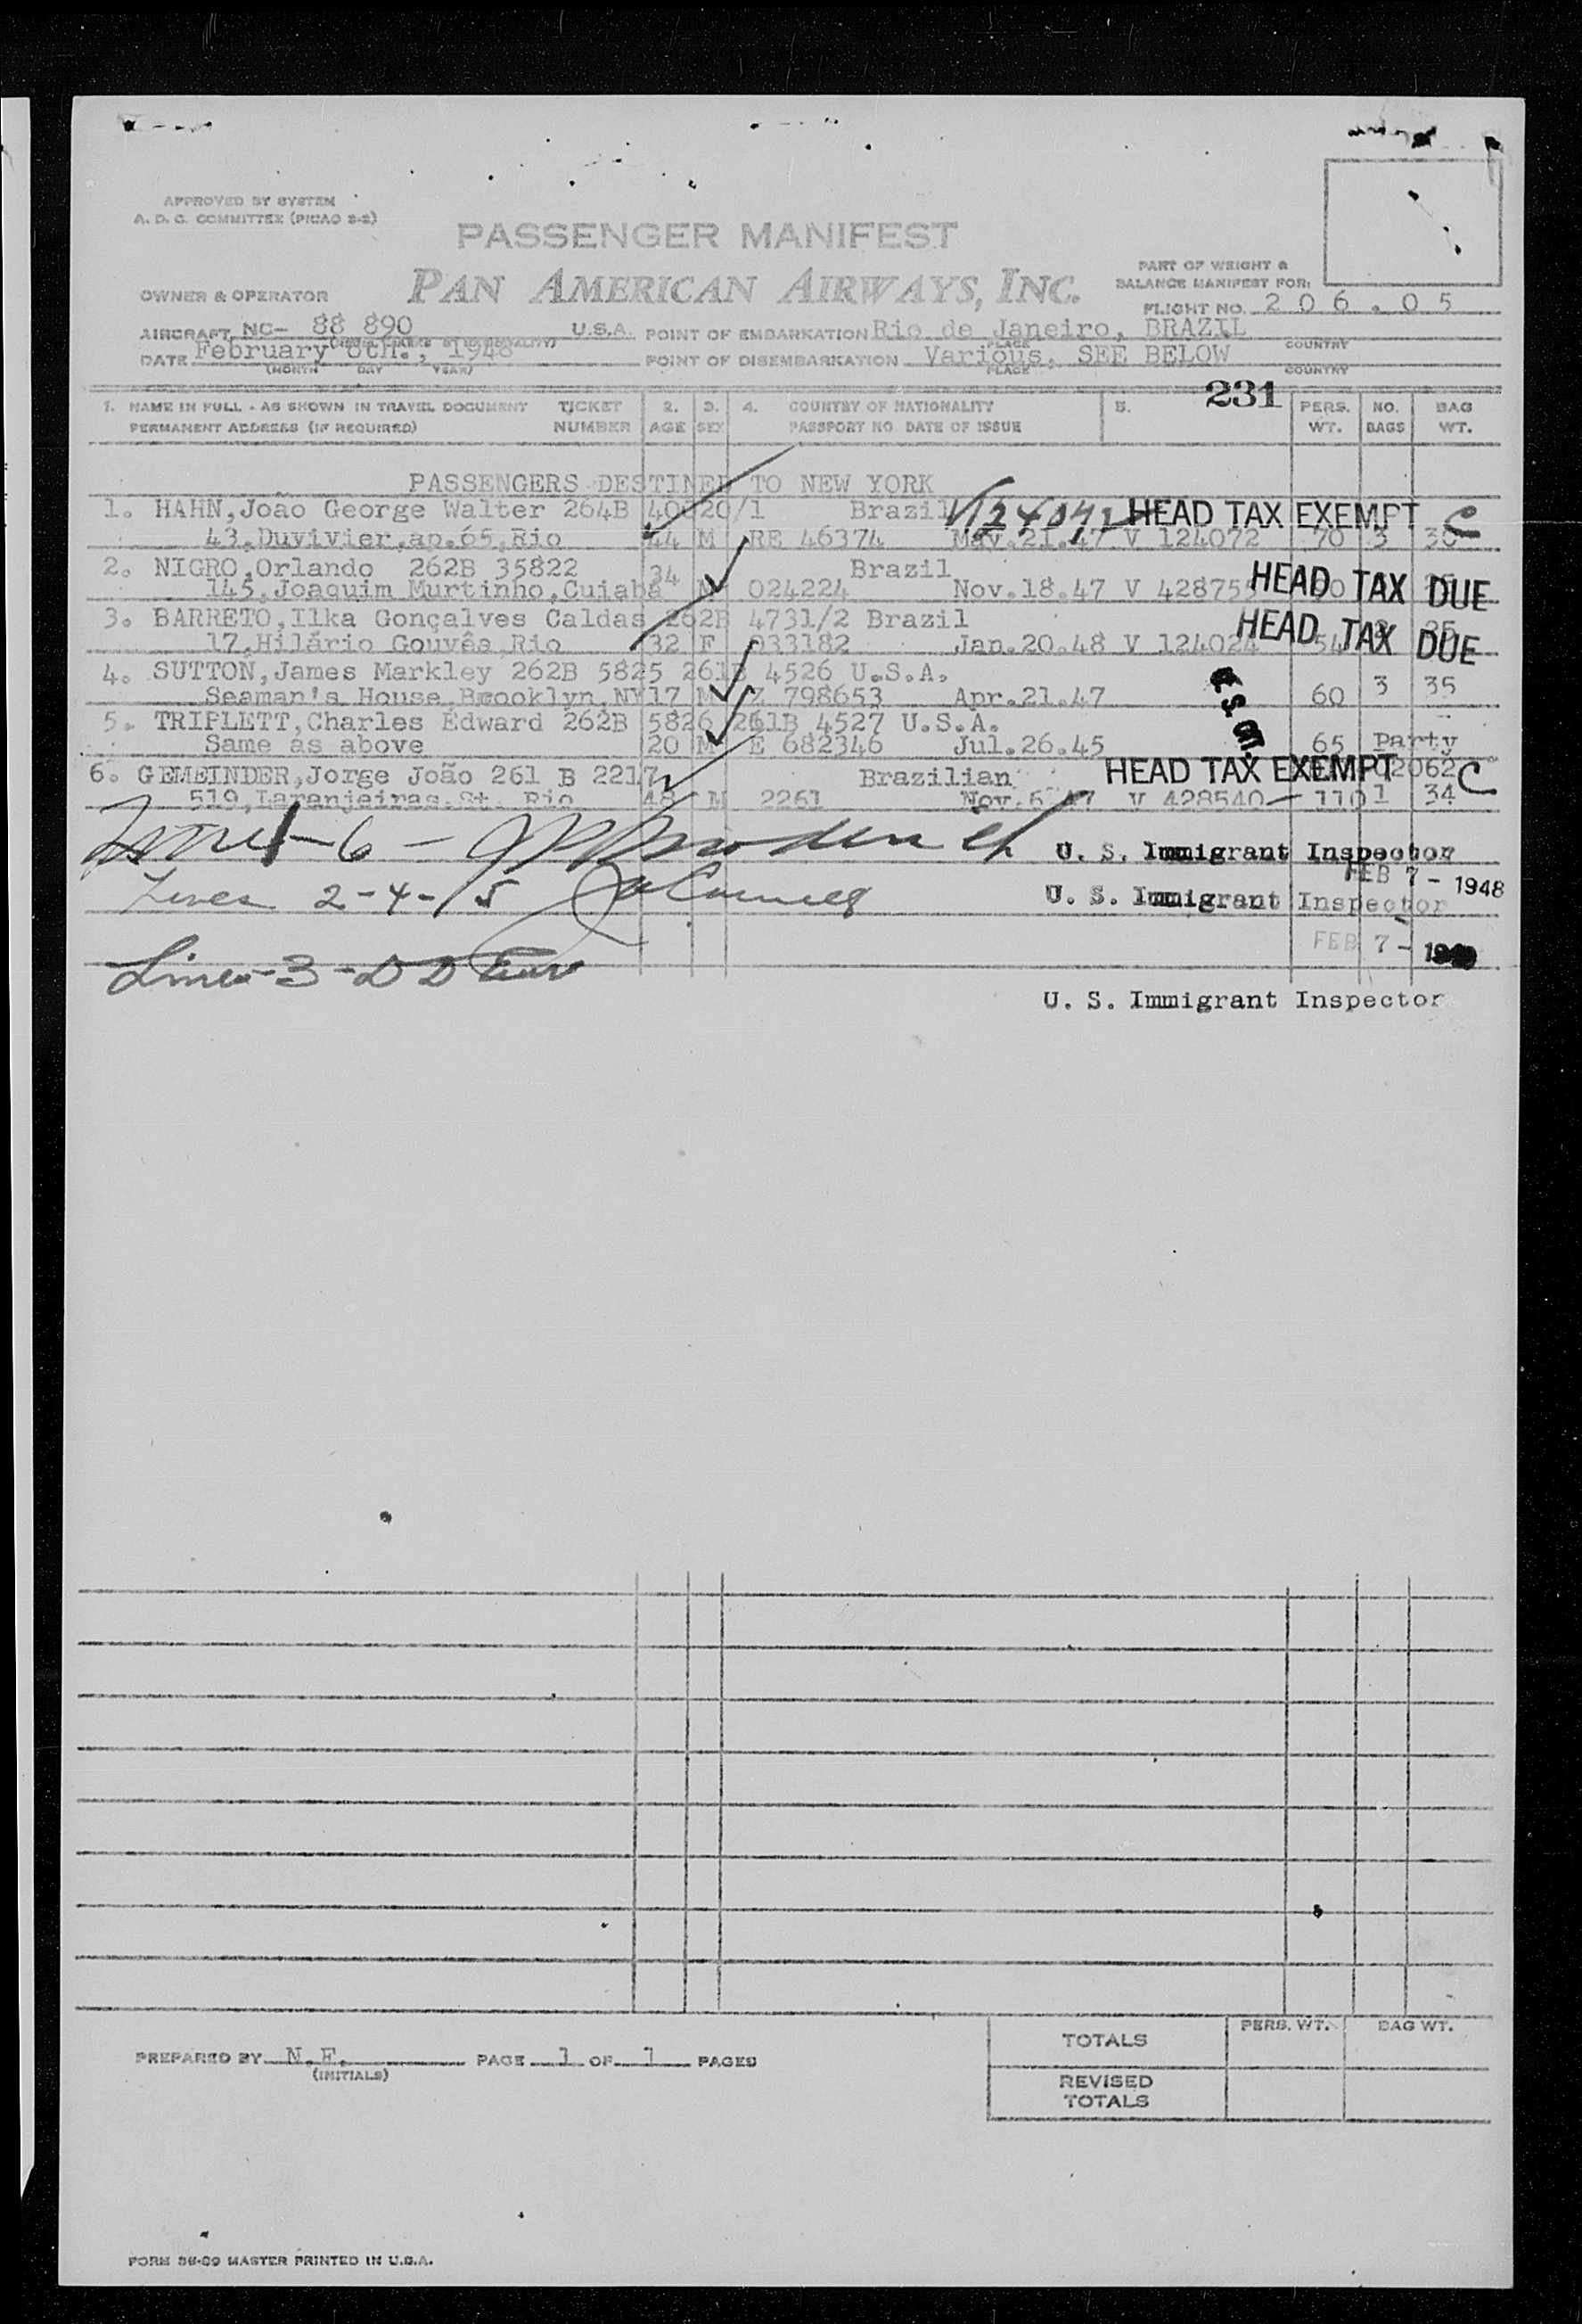 APPROVED BY SYSTEM
A. D. C. COMMITTEE (PICAO 2-2)
PASSENGER MANIFEST
PAN AMERICAN AIRWAYS, INC.
PART OF WEIGHT &
BALANCE MANIFEST FOR:
OWNER & OPERATOR
FLIGHT NO. 206.05
AIRCRAFT NC- 88 890 U.S.A. POINT OF EMBARKATION Rio de Janeiro, BRAZIL
PLACE COUNTRY
DATE February 1948 POINT OF DISEMBARKATION Various, SEE BELOW
(MONTH DAY YEAR) PLACE COUNTRY
231
1. NAME IN FULL - AS SHOWN IN TRAVEL DOCUMENT TICKET 2. 3. 4. COUNTRY OF NATIONALITY 5. PERS. NO. BAG
PERMANENT ADDRESS (IF REQUIRED) NUMBER AGE SEX PASSPORT NO. DATE OF ISSUE WT. BAGS WT.
PASSENGERS DESTINED TO NEW YORK
1. HAHN,João George Walter 264B 40020/1 Brazil V124072 HEAD TAX EXEMPT C
43,Duvivier,ap.65,Rio 44 M RE 46374 May.21.47 V 124072 70 3 30
2. NIGRO,Orlando 262B 35822 34 Brazil HEAD TAX DUE
145,Joaquim Murtinho,Cuiabá M 024224 Nov.18.47 V
3. BARRETO,Ilka Gonçalves Caldas 262B 4731/2 Brazil HEAD TAX DUE
17,Hilário Gouvês,Rio 32 F 033182 Jan.20.48 V 124024 54
4. SUTTON,James Markley 262B 5825 261B 4526 U.S.A. 3 35
Seaman's House,Brooklyn,NY 17 M Z 798653 Apr.21.47 60
5. TRIPLETT,Charles Edward 262B 5826 261B 4527 U.S.A.
Same as above 20 M E 682346 Jul.26.45 65 Party
6. GEMEINDER,Jorge João 261 B 2217 Brazilian HEAD TAX EXEMPT 02062 C
519,Laranjeiras St. Rio 48 M 2261 Nov.6 47 V 428540 110 1 34
1-6 - U. S. Immigrant Inspector
FEB 7 - 1948
Lines 2-4-5 U. S. Immigrant Inspector
FEB 7 -
Lines-3-
U. S. Immigrant Inspector
PREPARED BY N.F. PAGE 1 OF 1 PAGES
(INITIALS)
PERS. WT. BAG WT.
TOTALS
REVISED
TOTALS
FORM MASTER PRINTED IN U.S.A.